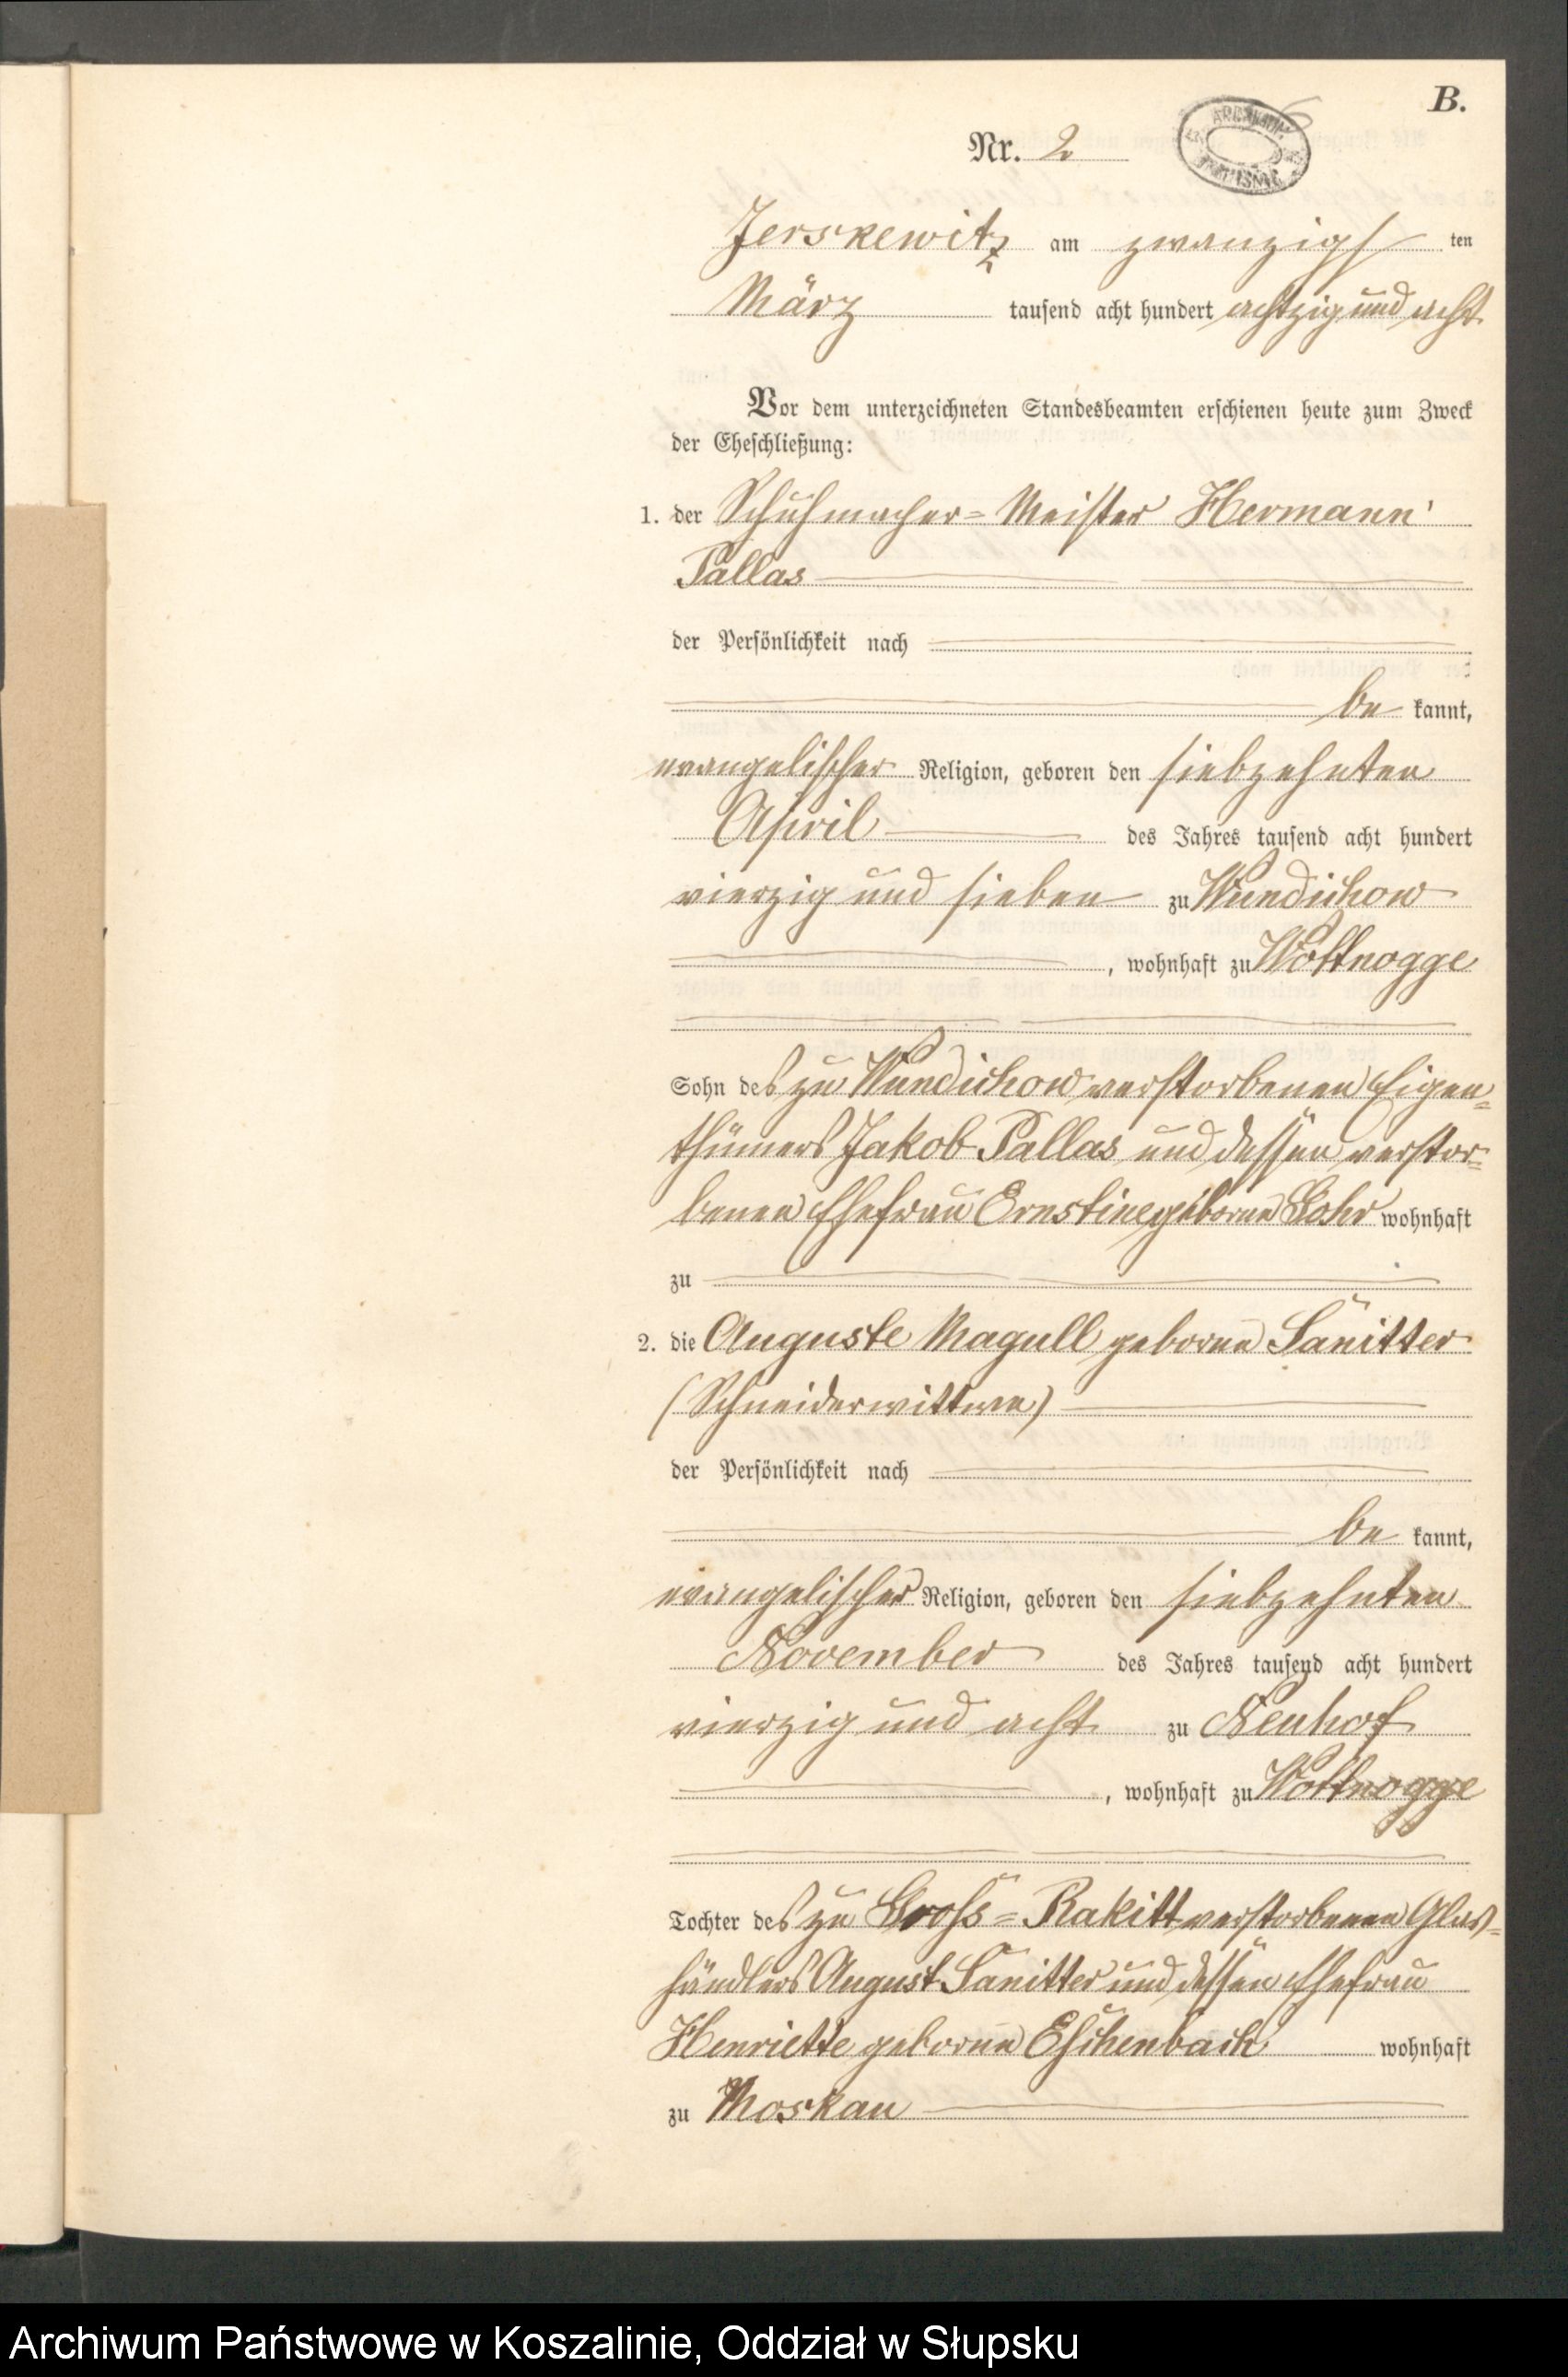 B.
Nr. 2
Jerskewitz am zwanzigsten
März tausend acht hundert achtzig und acht
Vor dem unterzeichneten Standesbeamten erschienen heute zum Zweck
der Eheschließung:
1. der Schuhmacher=Meister Hermann
Pallas
der Persönlichkeit nach
be kannt,
evangelischer Religion, geboren den siebzehnten
April des Jahres tausend acht hundert
vierzig und sieben zu Wundichow
, wohnhaft zu Wottnogge
Sohn des zu Wundichow verstorbenen Eigen=
thümers Jakob Pallas und dessen verstor=
benen Ehefrau Ernstine geborne wohnhaft
zu
2. die Auguste Magull geborne Sänitter
(Schneiderwittwe)
der Persönlichkeit nach
be kannt,
evangelischer Religion, geboren den siebzehnten
November des Jahres tausend acht hundert
vierzig und acht zu Neuhof
, wohnhaft zu Wottnogge
Tochter des zu Gross=Rakitt verstorbenen Glas=
händlers August Sänitter und dessen Ehefrau
Henriette geborne Eschenbach wohnhaft
zu Moskau
Archiwum Państwowe w Koszalinie, Oddział w Słupsku